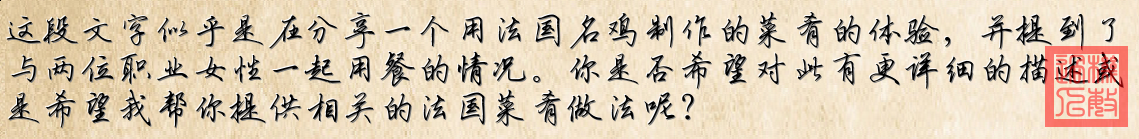 这段文字似乎是在分享一个用法国名鸡制作的菜肴的体验，并提到了
与两位职业女性一起用餐的情况。你是否希望对此有更详细的描述或
是希望我帮你提供相关的法国菜肴做法呢？